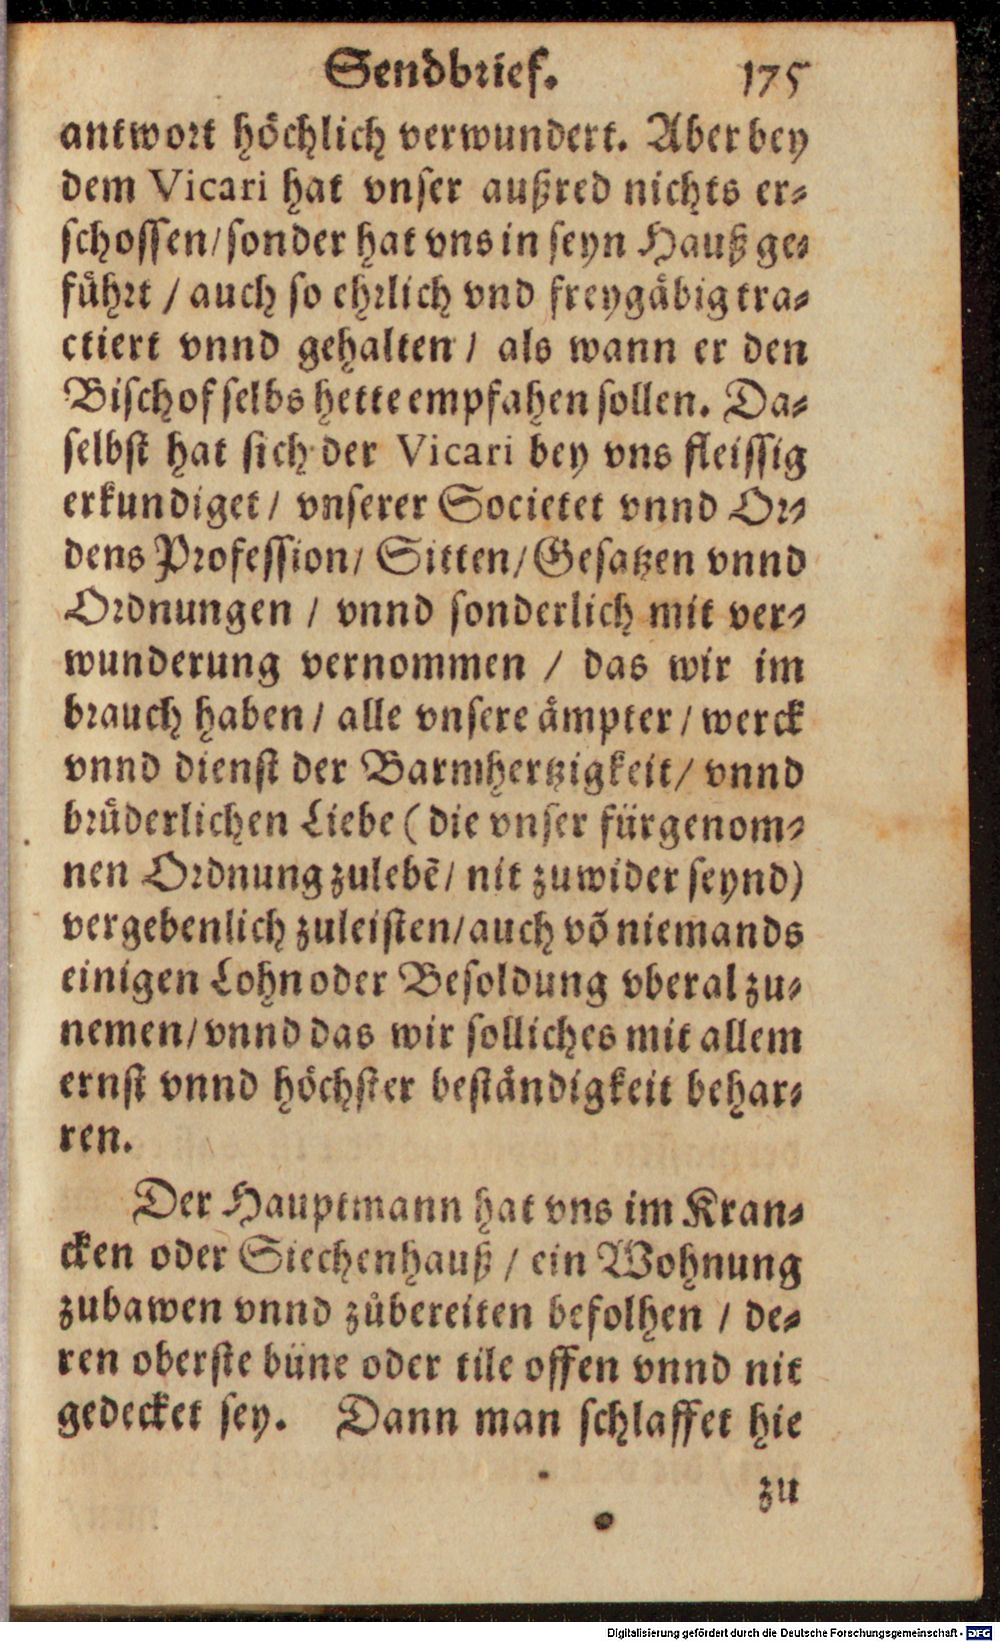 Sendbrief. 175
antwort hoͤchlich verwundert. Aber bey
dem Vicari hat vnser außred nichts er⸗
schossen/sonder hat vns in seyn Hauß ge⸗
fuͤhrt / auch so ehrlich vnd freygaͤbig tra⸗
ctiert vnnd gehalten / als wann er den
Bischof selbs hette empfahen sollen. Da⸗
selbst hat sich der Vicari bey vns fleissig
erkundiget / vnserer Societet vnnd Or⸗
dens Profession/ Sitten/ Gesatzen vnnd
Ordnungen / vnnd sonderlich mit ver⸗
wunderung vernommen / das wir im
brauch haben / alle vnsere aͤmpter / werck
vnnd dienst der Barmhertzigkeit/ vnnd
bruͤderlichen Liebe ( die vnser fürgenom⸗
nen Ordnung zulebẽ/ nit zuwider seynd)
vergebenlich zuleisten/auch võ niemands
einigen Lohn oder Besoldung vberal zu⸗
nemen/ vnnd das wir solliches mit allem
ernst vnnd hoͤchster bestaͤndigkeit behar⸗
ren.
Der Hauptmann hat vns im Kran⸗
cken oder Siechenhauß / ein Wohnung
zubawen vnnd zůbereiten befolhen / de⸗
ren oberste büne oder tile offen vnnd nit
gedecket sey. Dann man schlaffet hie
zu
Digitalisierung gefördert durch die Deutsche Forschungsgemeinschaft - DFG